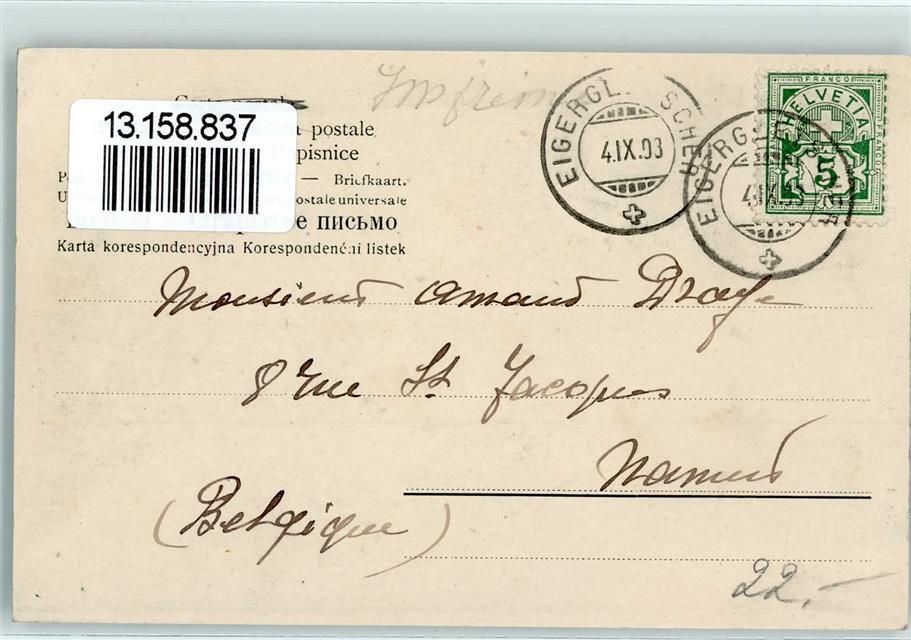 13.158.837
postale
pisnice
— Briefkaart.
postale universale
письмо
Karta korespondencyjna Korespondenční listek
EIGERGL SCHER
4.IX.03
EIGERG
FRANCO
HELVETIA
FRANCO
5
Monsieur Amand
8 rue St. Jacques
Namur
(Belgique)
22.-